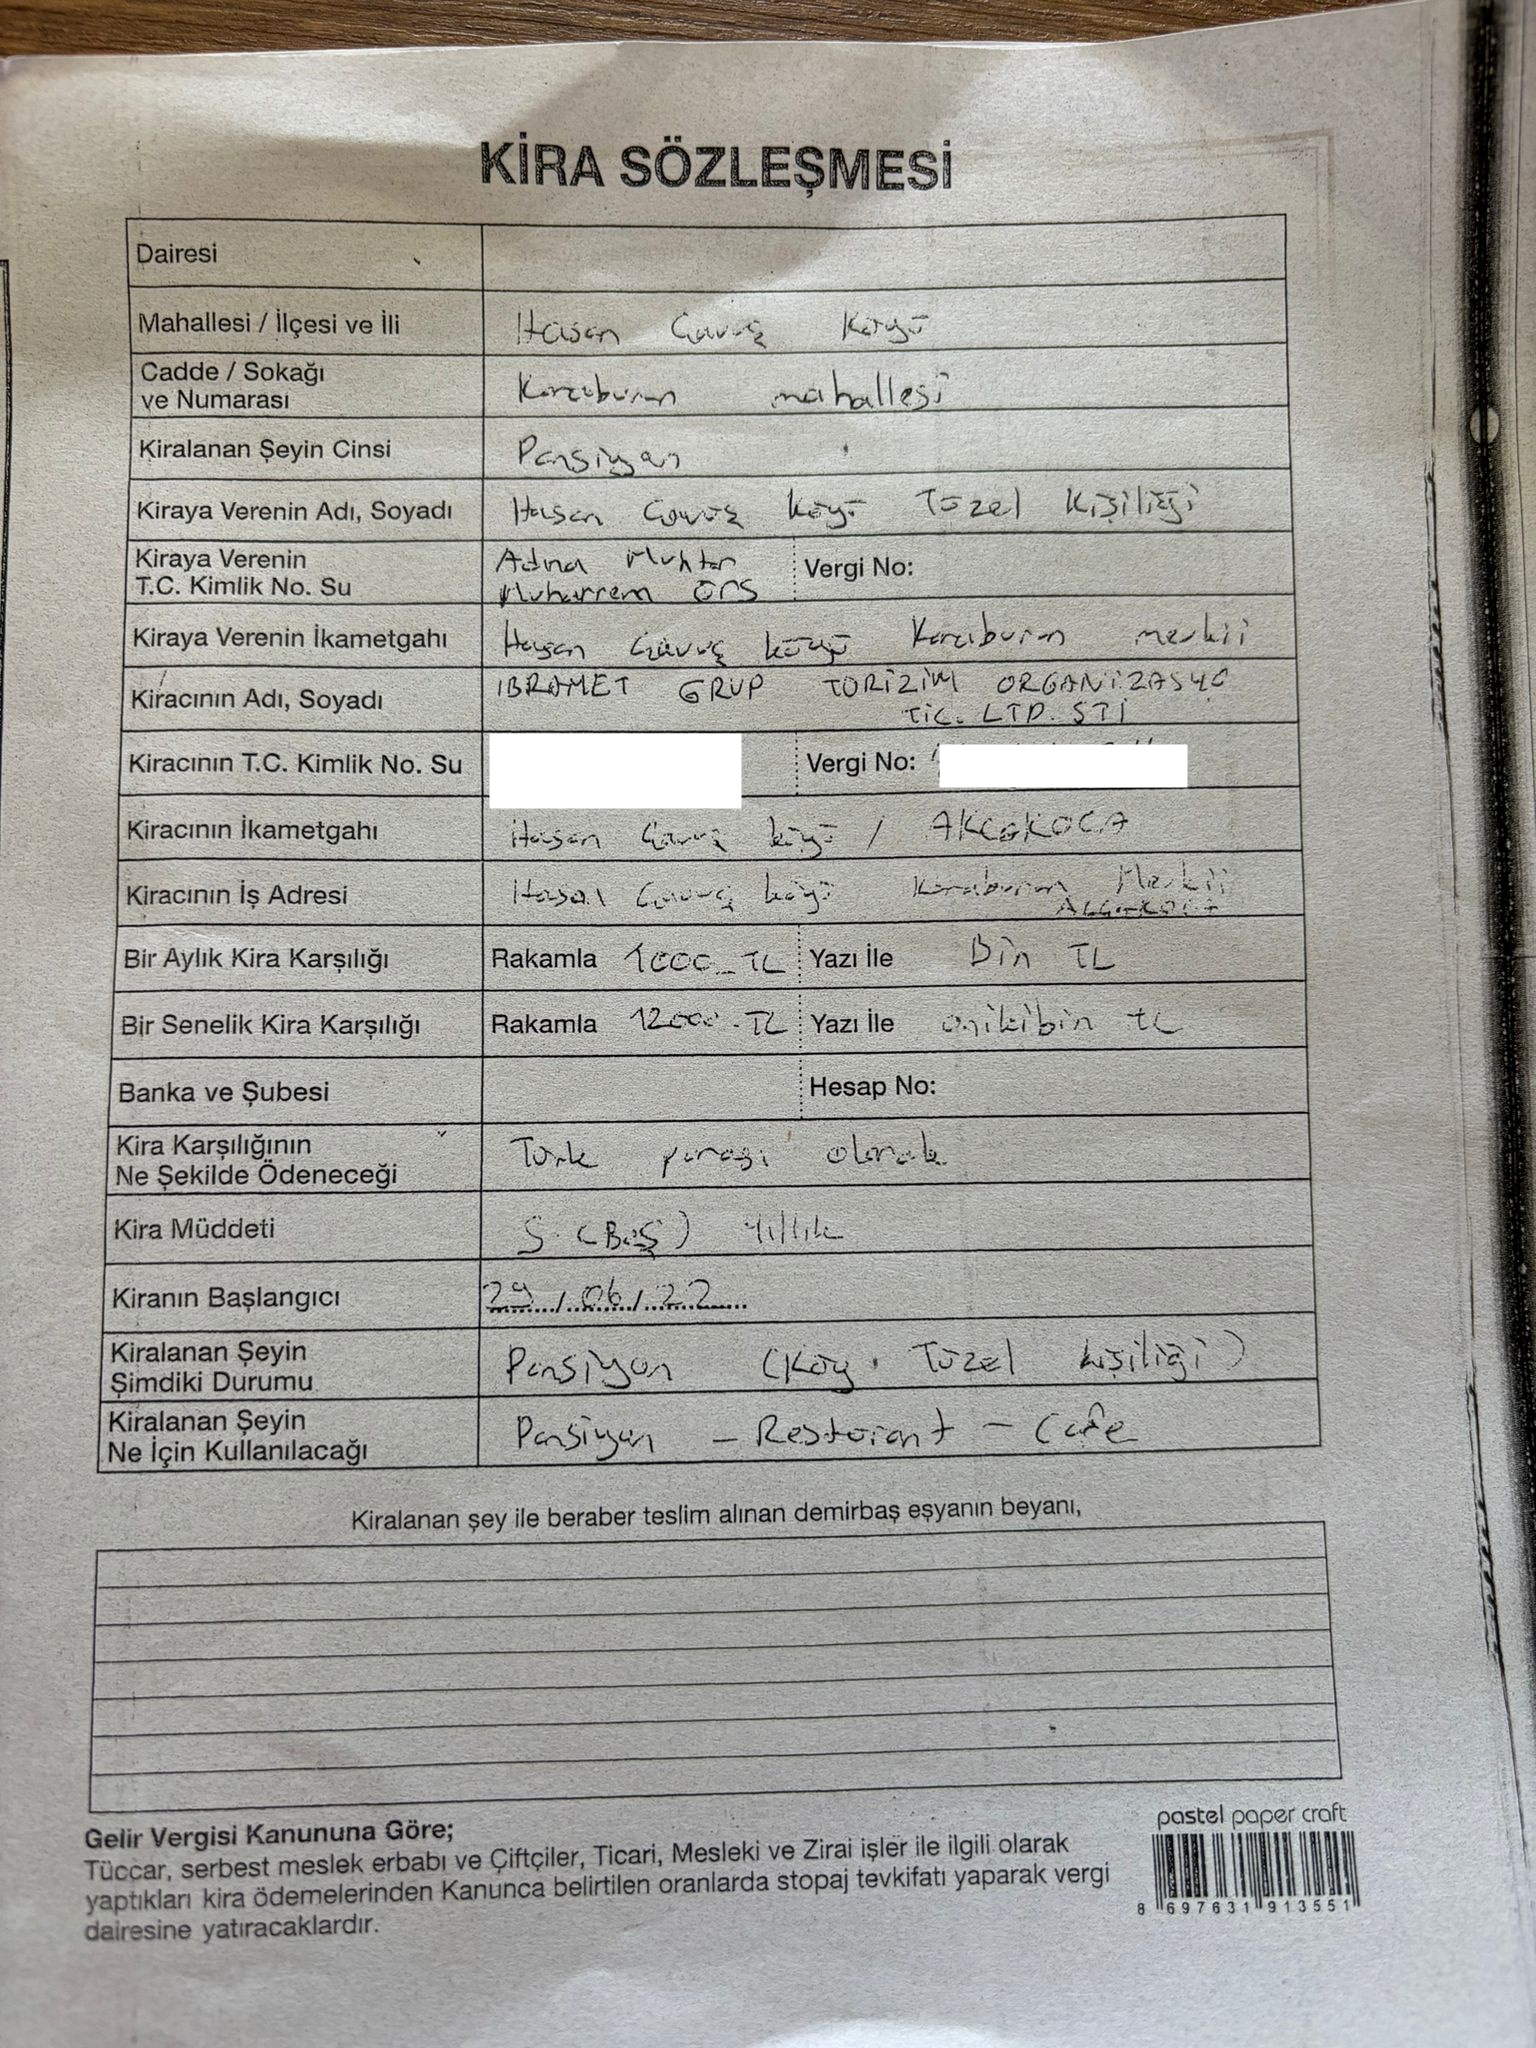 KİRA SÖZLEŞMESİ
Dairesi
Mahallesi / İlçesi ve İli Hasan Çavuş Köyü
Cadde / Sokağı
ve Numarası Karaburun mahallesi
Kiralanan Şeyin Cinsi Pansiyon
Kiraya Verenin Adı, Soyadı Hasan Çavuş Köyü Tüzel Kişiliği
Kiraya Verenin Adına Muhtar Vergi No:
T.C. Kimlik No. Su Muharrem ÖRS
Kiraya Verenin İkametgahı Hasan Çavuş köyü Karaburun mevkii
Kiracının Adı, Soyadı IBRAMET GRUP TORİZİM ORGANİZASYO
TİC. LTD. STİ
Kiracının T.C. Kimlik No. Su Vergi No:
Kiracının İkametgahı Hasan Çavuş köyü / AKÇAKOCA
Kiracının İş Adresi Hasan Çavuş köyü Karaburun Mevkii
AKÇAKOCA
Bir Aylık Kira Karşılığı Rakamla 1000_TL Yazı İle Bin TL
Bir Senelik Kira Karşılığı Rakamla 12000-TL Yazı İle onikibin TL
Banka ve Şubesi Hesap No:
Kira Karşılığının
Ne Şekilde Ödeneceği Türk parası olarak
Kira Müddeti 5 (Beş) Yıllık
Kiranın Başlangıcı 29/06/22
Kiralanan Şeyin
Şimdiki Durumu Pansiyon (Köy Tüzel kişiliği)
Kiralanan Şeyin
Ne İçin Kullanılacağı Pansiyon - Restorant - Cafe
Kiralanan şey ile beraber teslim alınan demirbaş eşyanın beyanı,
Gelir Vergisi Kanununa Göre;
Tüccar, serbest meslek erbabı ve Çiftçiler, Ticari, Mesleki ve Zirai işler ile ilgili olarak
yaptıkları kira ödemelerinden Kanunca belirtilen oranlarda stopaj tevkifatı yaparak vergi
dairesine yatıracaklardır.
pastel paper craft
8 697631 913551